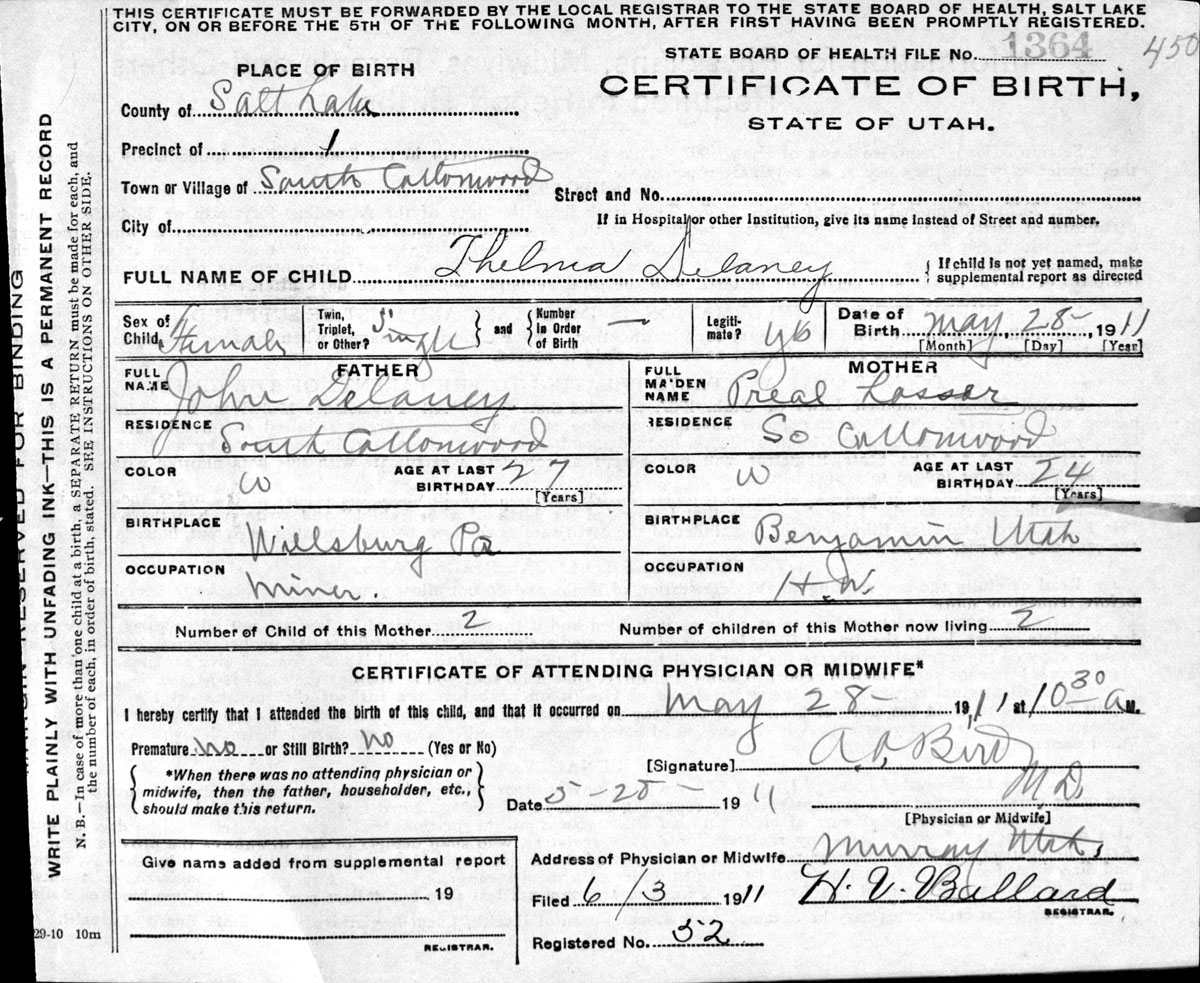 THIS CERTIFICATE MUST BE FORWARDED BY THE LOCAL REGISTRAR TO THE STATE BOARD OF HEALTH, SALT LAKE
CITY, ON OR BEFORE THE 5TH OF THE FOLLOWING MONTH, AFTER FIRST HAVING BEEN PROMPTLY REGISTERED.
STATE BOARD OF HEALTH FILE No. 1364 450
PLACE OF BIRTH
CERTIFICATE OF BIRTH,
STATE OF UTAH.
County of Salt Lake
Precinct of 1
Town or Village of South Cottonwood Street and No.
If in Hospital or other Institution, give its name instead of Street and number.
City of
FULL NAME OF CHILD Thelma Delaney { If child is not yet named, make supplemental report as directed
Sex of Child Female Twin, Triplet, or Other? Single } and { Number in Order of Birth — Legiti-mate? yes Date of Birth May 28 1911
[Month] [Day] [Year]
FATHER MOTHER
FULL NAME John Delaney FULL MAIDEN NAME Preal Lossor
RESIDENCE South Cottonwood RESIDENCE So Cottonwood
COLOR W AGE AT LAST BIRTHDAY 27 [Years] COLOR W AGE AT LAST BIRTHDAY 24 [Years]
BIRTHPLACE Willsburg Pa BIRTHPLACE Benjamin Utah
OCCUPATION Miner. OCCUPATION H.W.
Number of Child of this Mother 2 Number of children of this Mother now living 2
CERTIFICATE OF ATTENDING PHYSICIAN OR MIDWIFE*
I hereby certify that I attended the birth of this child, and that it occurred on May 28 1911 at 10 30 a M.
Premature no or Still Birth? no (Yes or No)
{ *When there was no attending physician or
midwife, then the father, householder, etc.,
should make this return. }
[Signature] Bird
M.D.
Date 5-28- 1911 [Physician or Midwife]
Give name added from supplemental report
19
REGISTRAR.
Address of Physician or Midwife Murray Utah,
Filed 6/3 1911 H. V. Ballard
REGISTRAR.
Registered No. 52
29-10 10m
MARGIN RESERVED FOR BINDING
WRITE PLAINLY WITH UNFADING INK—THIS IS A PERMANENT RECORD
N. B.—In case of more than one child at a birth, a SEPARATE RETURN must be made for each, and
the number of each, in order of birth, stated. SEE INSTRUCTIONS ON OTHER SIDE.